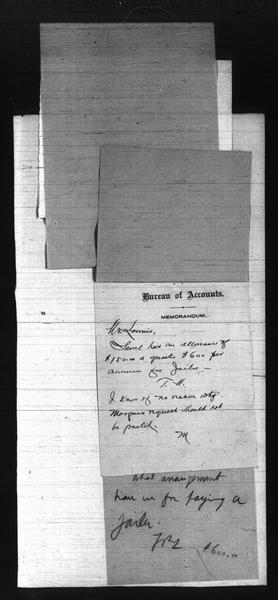 Bureau of Accounts.
MEMORANDUM.
Mr. Loomis,
Seoul has an allowance of
$1500 a year & $600 per
annum for Jailer —
T. M.
I know of no reason why
Morgan's request should not
be granted.
M
What arrangement
have we for paying a
jailer.
FBL
$600.00